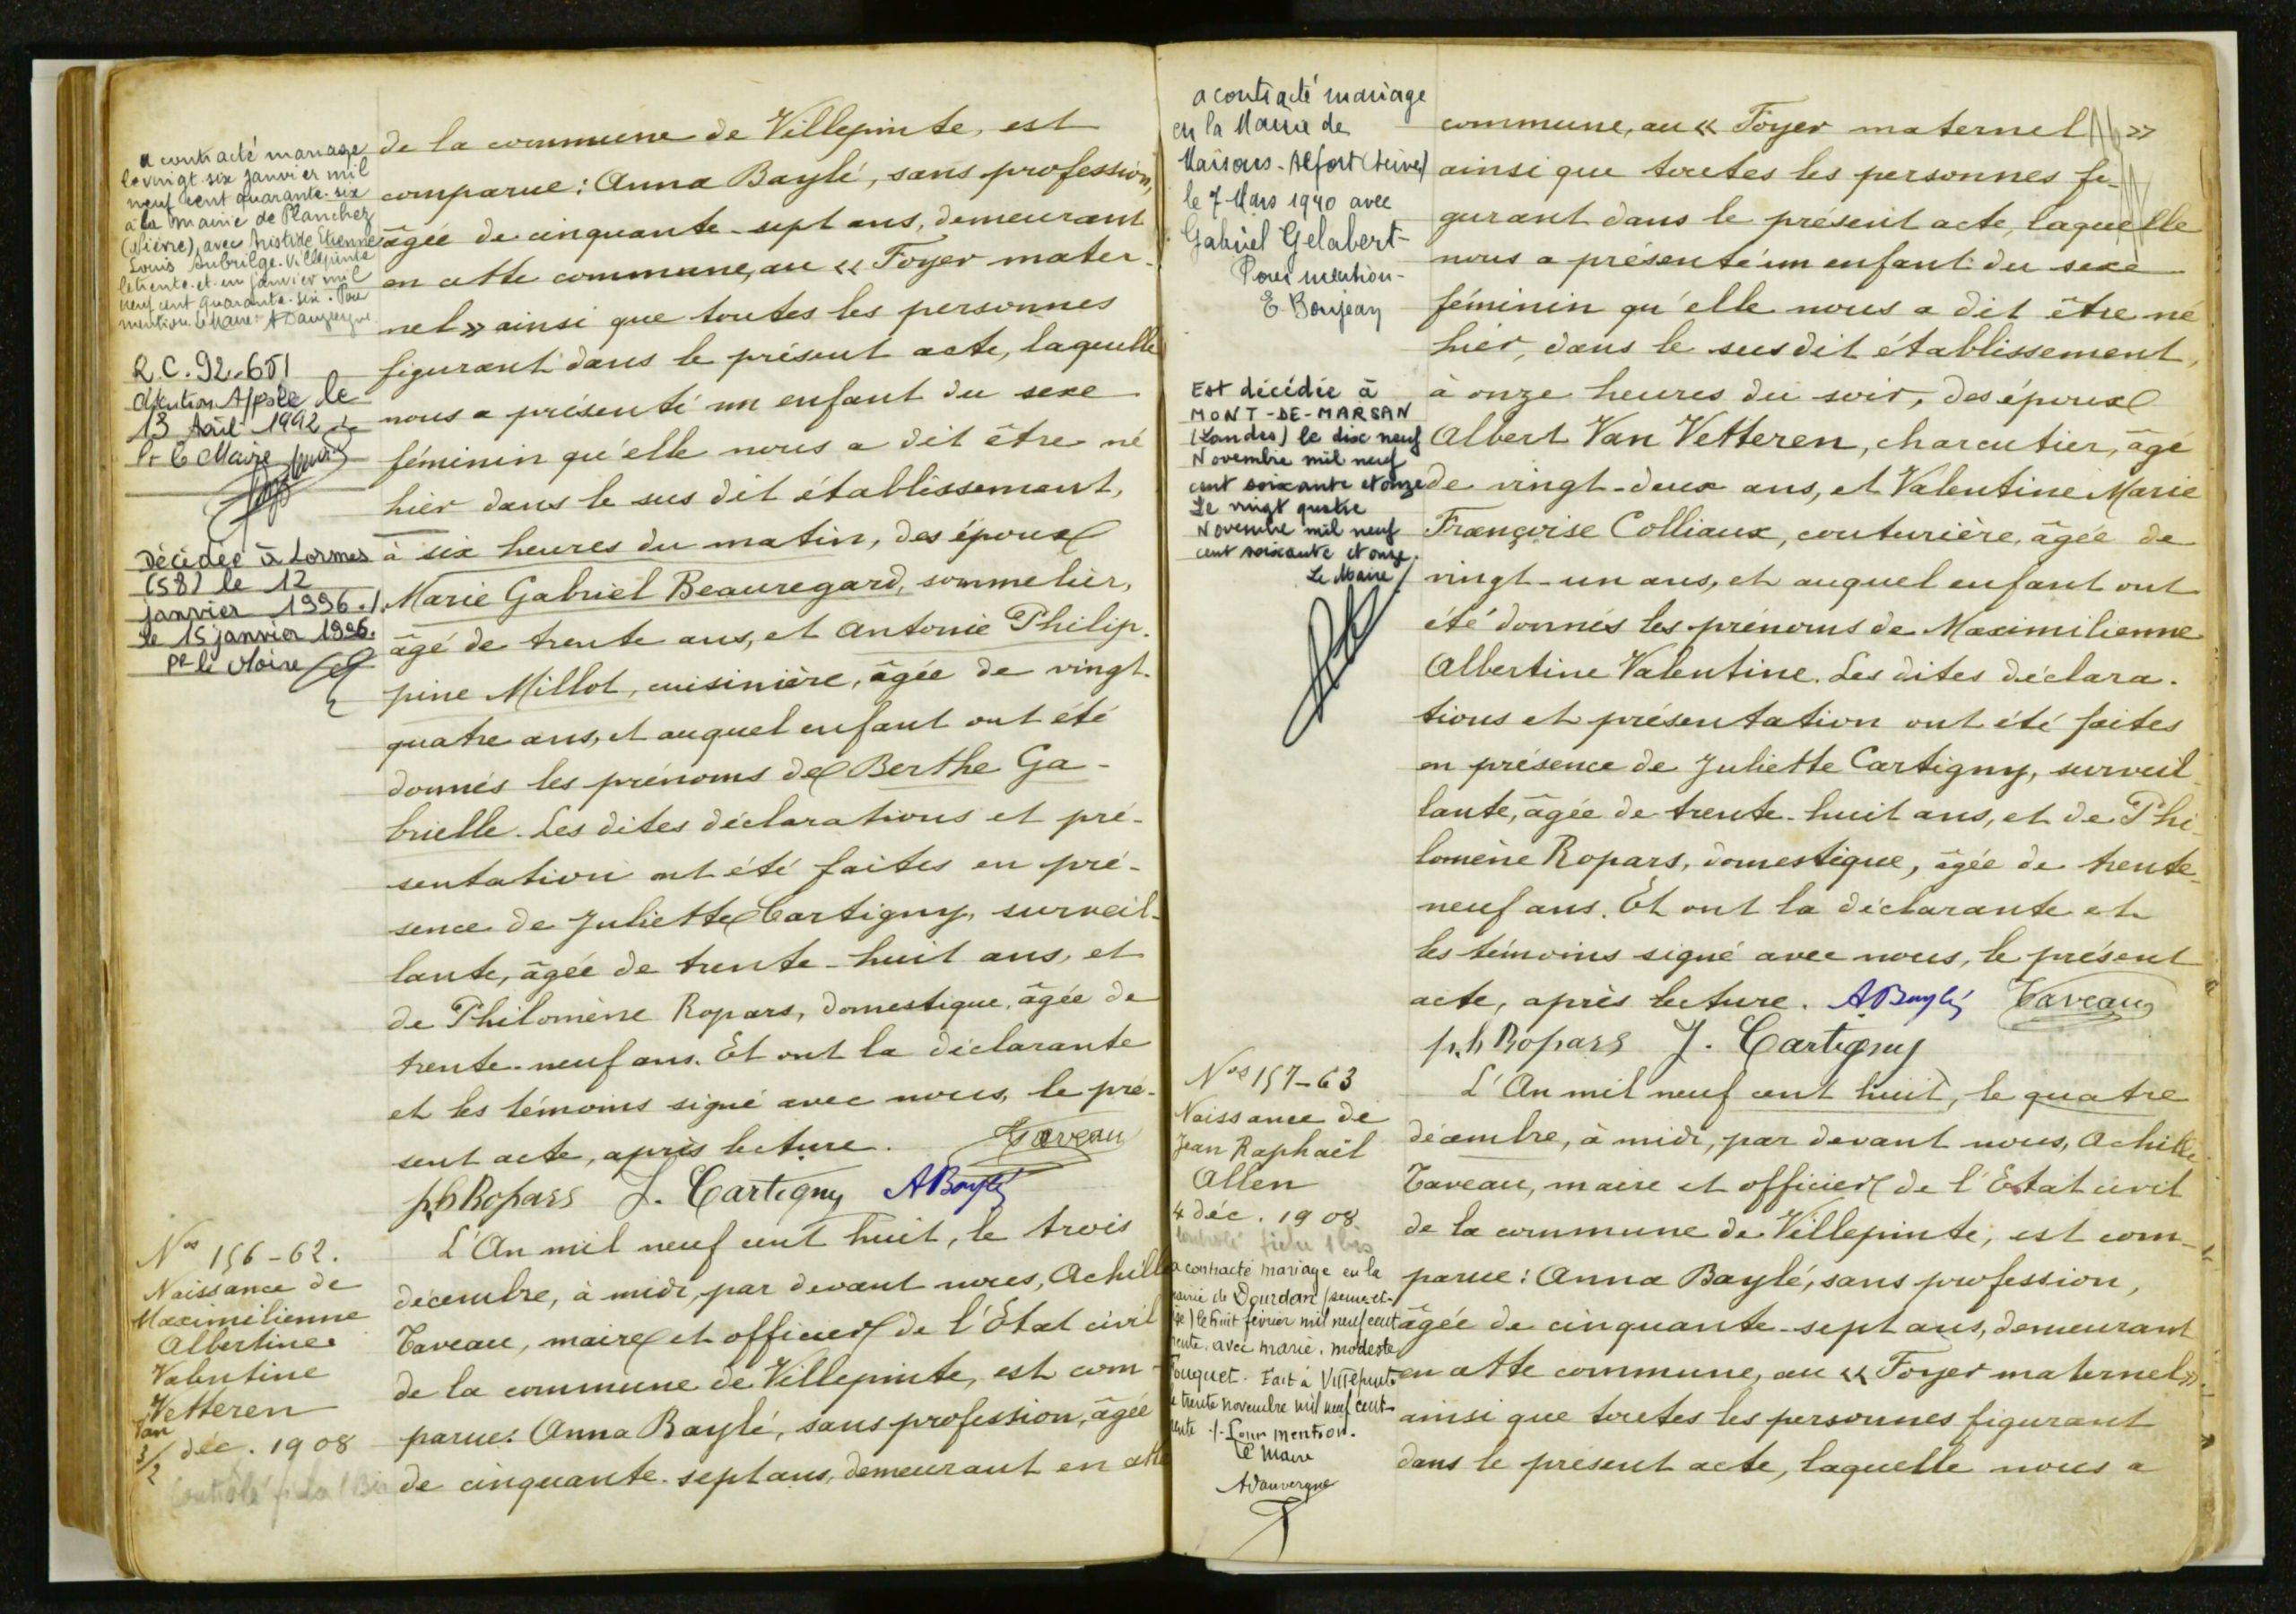 a contracté mariage
le vingt-six janvier mil
neuf cent quarante-six
à la mairie de Planchez
(Nièvre), avec Aristide Etienne
Louis Aubrilge. Villepinte
le trente-et-un janvier mil
neuf cent quarante-six. Pour
mention. Le Maire:
R.C. 92.651
le
13 Août 1992
Pr le Maire
Décédée à Lormes
(58) le 12
janvier 1996./.
Le 15 janvier 1996.
Pr le Maire
de la commune de Villepinte, est
comparue: Anna Baylé, sans profession,
âgée de cinquante-sept ans, demeurant
en cette commune, au « Foyer mater-
nel » ainsi que toutes les personnes
figurant dans le présent acte, laquelle
nous a présenté un enfant du sexe
féminin qu'elle nous a dit être né
hier dans le sus dit établissement,
à six heures du matin, des époux
Marie Gabriel Beauregard, sommelier,
âgé de trente ans, et Antonie Philip-
pine Millot, cuisinière, âgée de vingt-
quatre ans, et auquel enfant ont été
donnés les prénoms de Berthe Ga-
brielle. Les dites déclarations et pré-
sentation ont été faites en pré-
sence de Juliette Cartigny, surveil-
lante, âgée de trente-huit ans, et
de Philomène Ropars, domestique, âgée de
trente-neuf ans. Et ont la déclarante
et les témoins signé avec nous, le pré-
sent acte, après lecture. Taveau
ph Ropars J. Cartigny A Baylé
Nos 156-62.
Naissance de
Maximilienne
Albertine
Valentine
Van Vetteren
3/2 déc. 1908
Contrôlé
L'An mil neuf cent huit, le trois
décembre, à midi, par devant nous, Achille
Taveau, maire et officier de l'Etat civil
de la commune de Villepinte, est com-
parue: Anna Baylé, sans profession, âgée
de cinquante-sept ans, demeurant en cette
a contracté mariage
en la Mairie de
Maisons-Alfort (Seine)
le 7 Mars 1940 avec
Gabriel Gelabert-
Pour mention-
E Boujean
Est décédée à
MONT-DE-MARSAN
(Landes) le dix neuf
Novembre mil neuf
cent soixante et onze
Le vingt quatre
Novembre mil neuf
cent soixante et onze.
Le Maire
commune, au « Foyer maternel »
ainsi que toutes les personnes fi-
gurant dans le présent acte, laquelle
nous a présenté un enfant du sexe
féminin qu'elle nous a dit être né
hier, dans le susdit établissement,
à onze heures du soir, des époux
Albert Van Vetteren, charcutier, âgé
de vingt-deux ans, et Valentine Marie
Françoise Colliaux, couturière, âgée de
vingt-un ans, et auquel enfant ont
été donnés les prénoms de Maximilienne
Albertine Valentine. Les dites déclara-
tions et présentation ont été faites
en présence de Juliette Cartigny, surveil-
lante, âgée de trente-huit ans, et de Phi-
lomène Ropars, domestique, âgée de trente-
neuf ans. Et ont la déclarante et
les témoins signé avec nous, le présent
acte, après lecture. A Baylé Taveau
p.h Ropars J. Cartigny
Nos 157-63
Naissance de
Jean Raphaël
Allen
4 déc. 1908
contrôlé fiche 1 bis
a contracté mariage en la
mairie de Dourdan (Seine-et-
Oise) le huit février mil neuf cent
trente. avec Marie. Modeste
Fouquet. Fait à Villepinte
le trente novembre mil neuf cent
trente -/- Pour mention.
Le Maire
A Dauvergne
L'An mil neuf cent huit, le quatre
décembre, à midi, par devant nous, Achille
Taveau, maire et officier de l'Etat civil
de la commune de Villepinte, est com-
parue: Anna Baylé, sans profession,
âgée de cinquante-sept ans, demeurant
en cette commune, au « Foyer maternel »
ainsi que toutes les personnes figurant
dans le présent acte, laquelle nous a